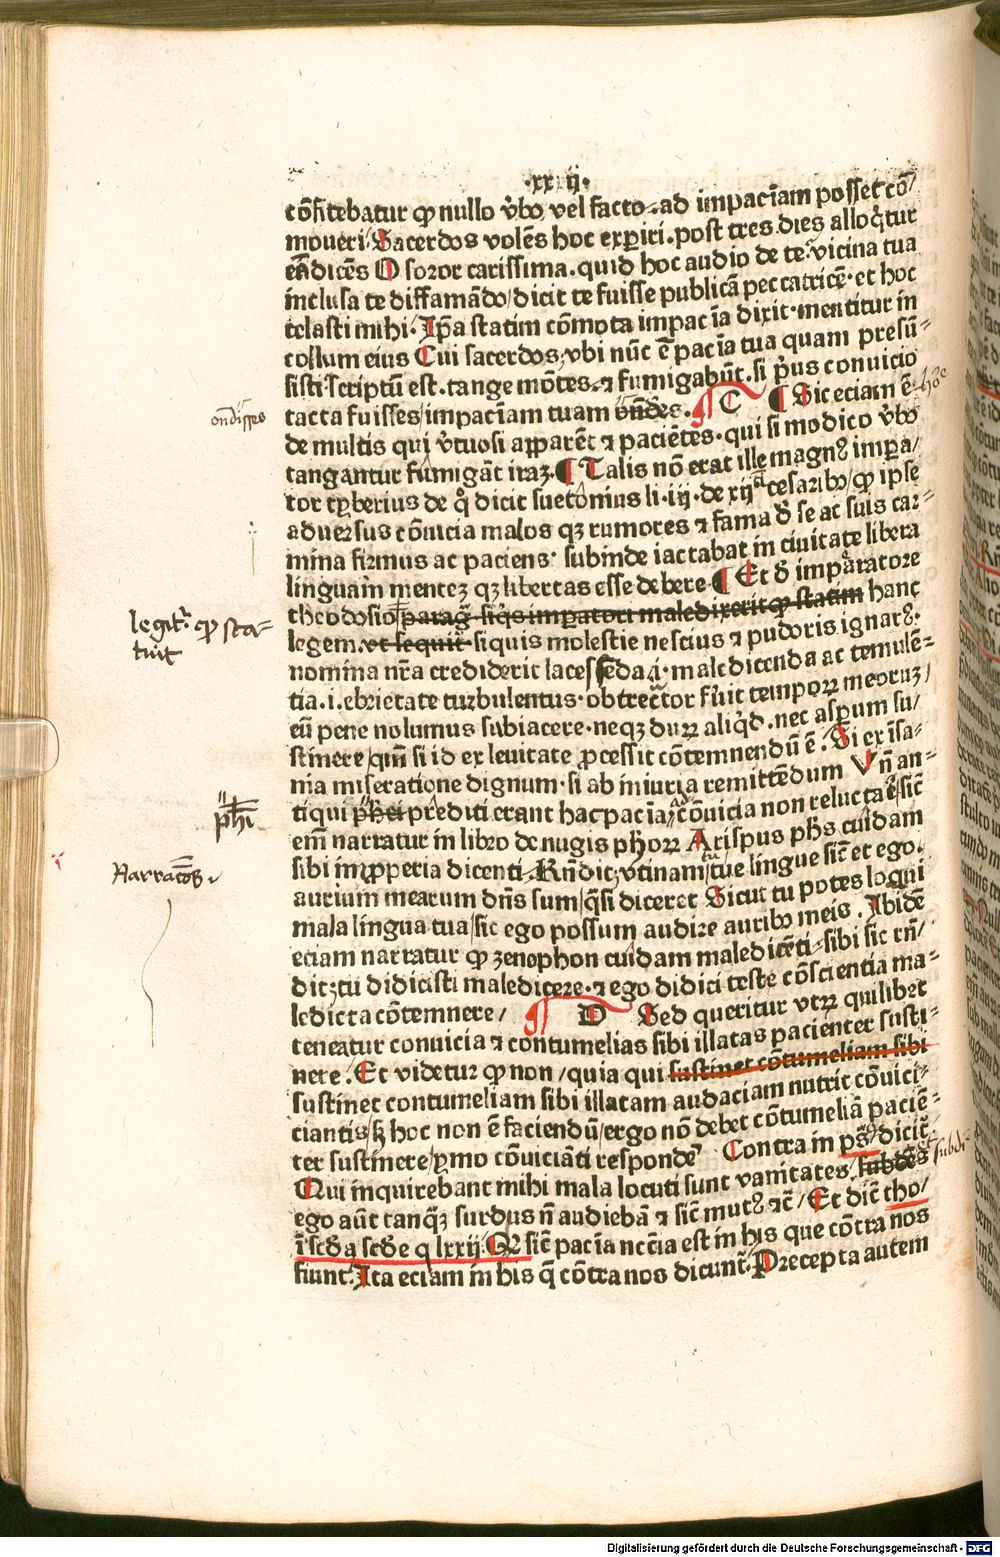 ·xx ij·
cōfitebatur ꝙ nullo v̓bo vel facto ad impaciam posset cō/
moueri Sacerdos volēs hoc experiri. post tres dies alloq̄tur
eādicēs O soror carissima. quid hoc audio de te. vicina tua
inclusa te diffamādo/dicit te fuisse publicā peccatricē· et hoc
celasti mihi· Ip̄a statim cōmota impacīa dixit· mentitur in
collum eius Cui sacerdos, vbi nūc ē pacīa tua quam presū-
sisti scriptū est. tange mōtes ⁊ fumigabūt. si p̓us conuicio
ondisses
tacta fuisses/impaciam tuam ōndēs. C Sic eciam ē hōc
de multis qui v̓tuosi apparēt ⁊ paciētes. qui si modico v̓bo
tangantur fumigāt iraꝫ. Talis nō erat ille magnꝰ impa/
tor tyberius de q̄ dicit suetonius li· iij· de xij cesaribꝰ/ꝙ ipse
aduersus cōuicia malos qꝫ rumores ⁊ fama d̓ se ac suis car-
mina firmus ac paciens· subinde iactabat in ciuitate libera
linguam menteꝫ qꝫ libertas esse debere Et d̓ imperatore
theodosio parag̅ siq̄s impatori maledixerit ꝙ statim hanc
legit̄ ꝙ sta-
tuit
legem. vt sequit̄ si quis molestie nescius ⁊ pudoris ignarꝰ·
nomina nr̄a crediderit lacessēda· maledicenda ac temulē-
tia .i. ebrietate turbulentus· obtrectator fu̓it temporꝝ meoruꝫ/
eū pene nolumus subiacere· neqꝫ durꝝ aliq̄d. nec asperum su/
stinere/qm̄ si id ex leuitate p̄cessit cōtemnendū ē. Si ex īsa-
nia miseratione dignum· si ab iniuria remittēdum Vn̄ an-
ph̄i
tiqui ph̄ei prediti erant hac pacīa/cōuicia non reluctāē/sic̄
em̄ narratur in libro de nugis phoꝝ Arispus ph̄s cuidam
Narratōs
sibi imꝓperia dicenti. Rn̄dic, vtinam tue lingue sic̄ et ego
aurium mearum dn̄s sum/q̄si diceret Sicut tu potes loqui
mala lingua tua/sic ego possum audire auribꝰ meis. Ibidē
eciam narratur ꝙ zenophon cuidam maledicēti sibi sic rn̄/
dit,tu didicisti maledicere· ⁊ ego didici teste cōscientia ma-
ledicta cōtemnere/ D Sed queritur vtꝝ quilibet
teneatur conuicia ⁊ contumelias sibi illatas pacienter susti-
nere. Et videtur ꝙ non/quia qui sustinet cōtumeliam sibi
sustinet contumeliam sibi illatam audaciam nutrit cōuici-
ciantis/sꝫ hoc non ē faciendū/ergo nō debet cōtumeliā paciē-
ter sustinere/ymo cōuiciāti respondē Contra in ps̄ dicit̄
Qui inquirebant mihi mala locuti sunt vanitates subdēs subdi-
ego aūt tanq̄ꝫ surdus n̄ audiebā ⁊ sic̄ mutꝰ ⁊c̄/Et dic̄ tho/
ī scd̓a scd̓e q lxxij Q sic̄ pacīa nccīa est in his que cōtra nos
fiunt. Ita eciam in his q̄ cōtra nos dicunt̄. Precepta autem
Digitalisierung gefördert durch die Deutsche Forschungsgemeinschaft - DFG